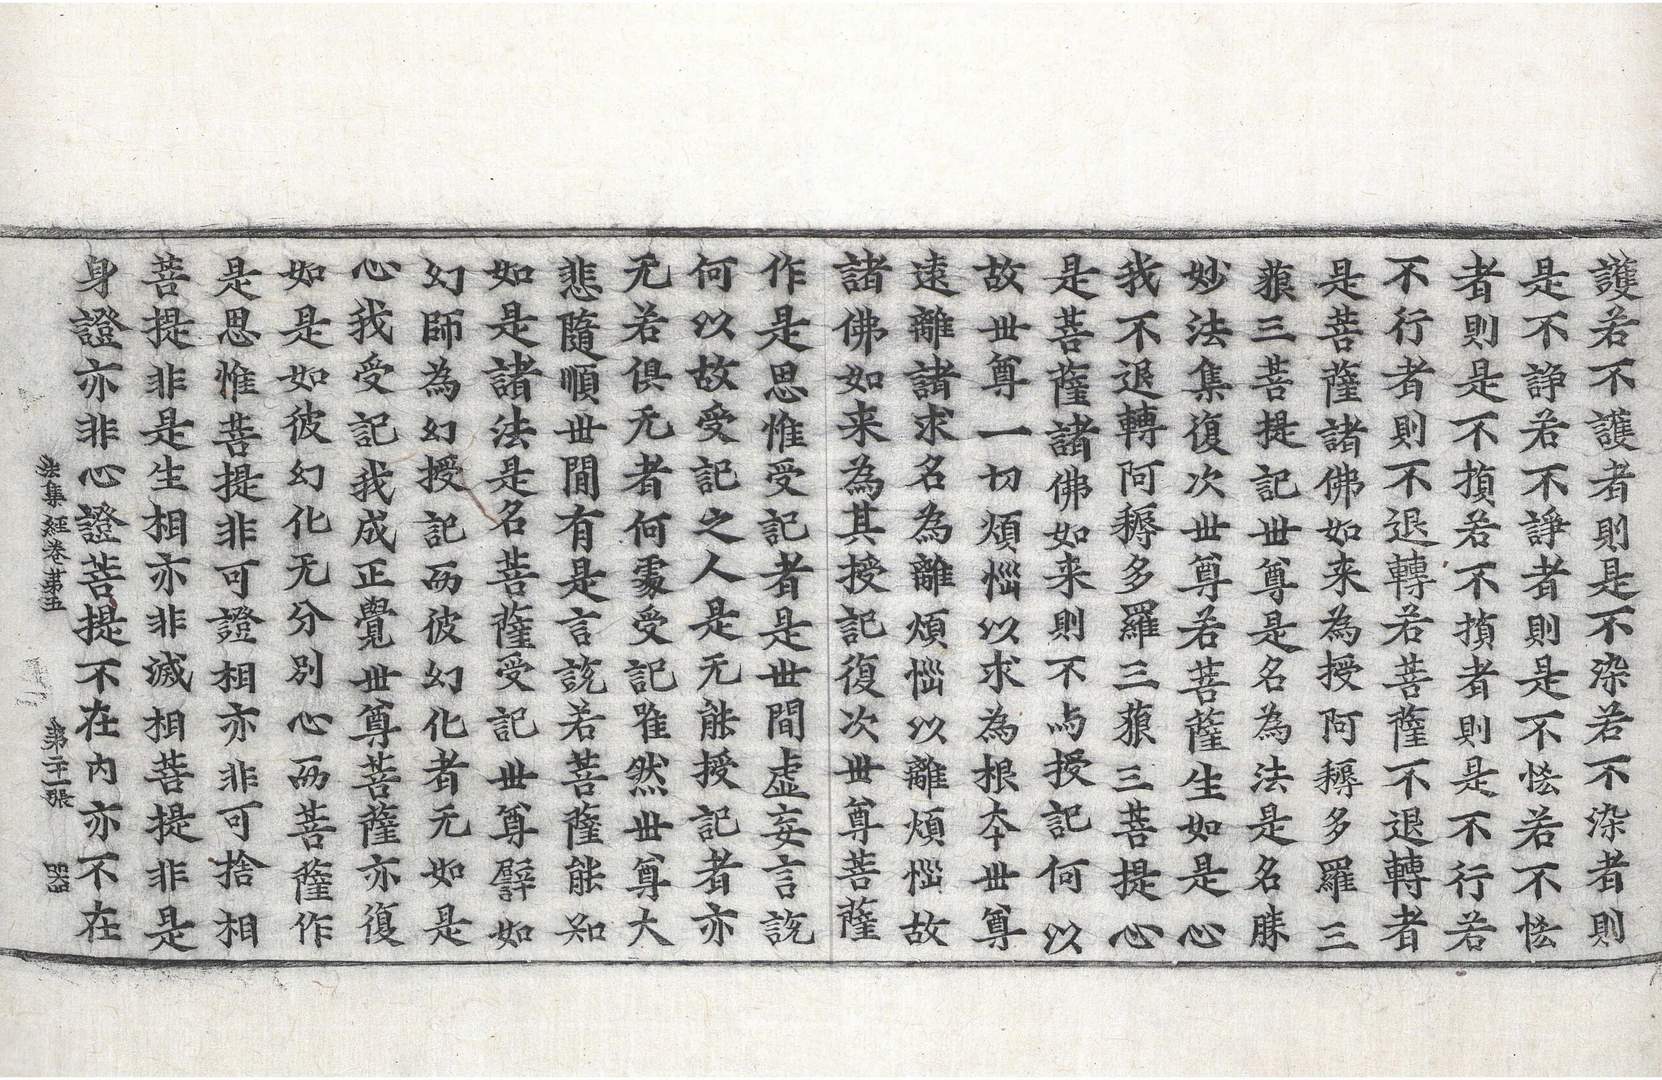 護若不護者則是不染若不染者則
是不諍若不諍者則是不恡若不恡
者則是不損若不損者則是不行若
不行者則不退轉若菩薩不退轉者
是菩薩諸佛如来為授阿耨多羅三
藐三菩提記世尊是名為法是名勝
妙法集復次世尊若菩薩生如是心
我不退轉阿耨多羅三藐三菩提心
是菩薩諸佛如来則不与授記何以
故世尊一切煩惱以求為根本世尊
遠離諸求名為離煩惱以離煩惱故
諸佛如来為其授記復次世尊菩薩
作是思惟受記者是世間虛妄言說
何以故受記之人是无能授記者亦
无若俱无者何處受記雖然世尊大
悲隨順世間有是言說若菩薩能知
如是諸法是名菩薩受記世尊譬如
幻師為幻授記而彼幻化者无如是
心我受記我成正覺世尊菩薩亦復
如是如彼幻化无分別心而菩薩作
是思惟菩提非可證相亦非可捨相
菩提非是生相亦非滅相菩提非是
身證亦非心證菩提不在内亦不在
法集經卷第五 第二十一張